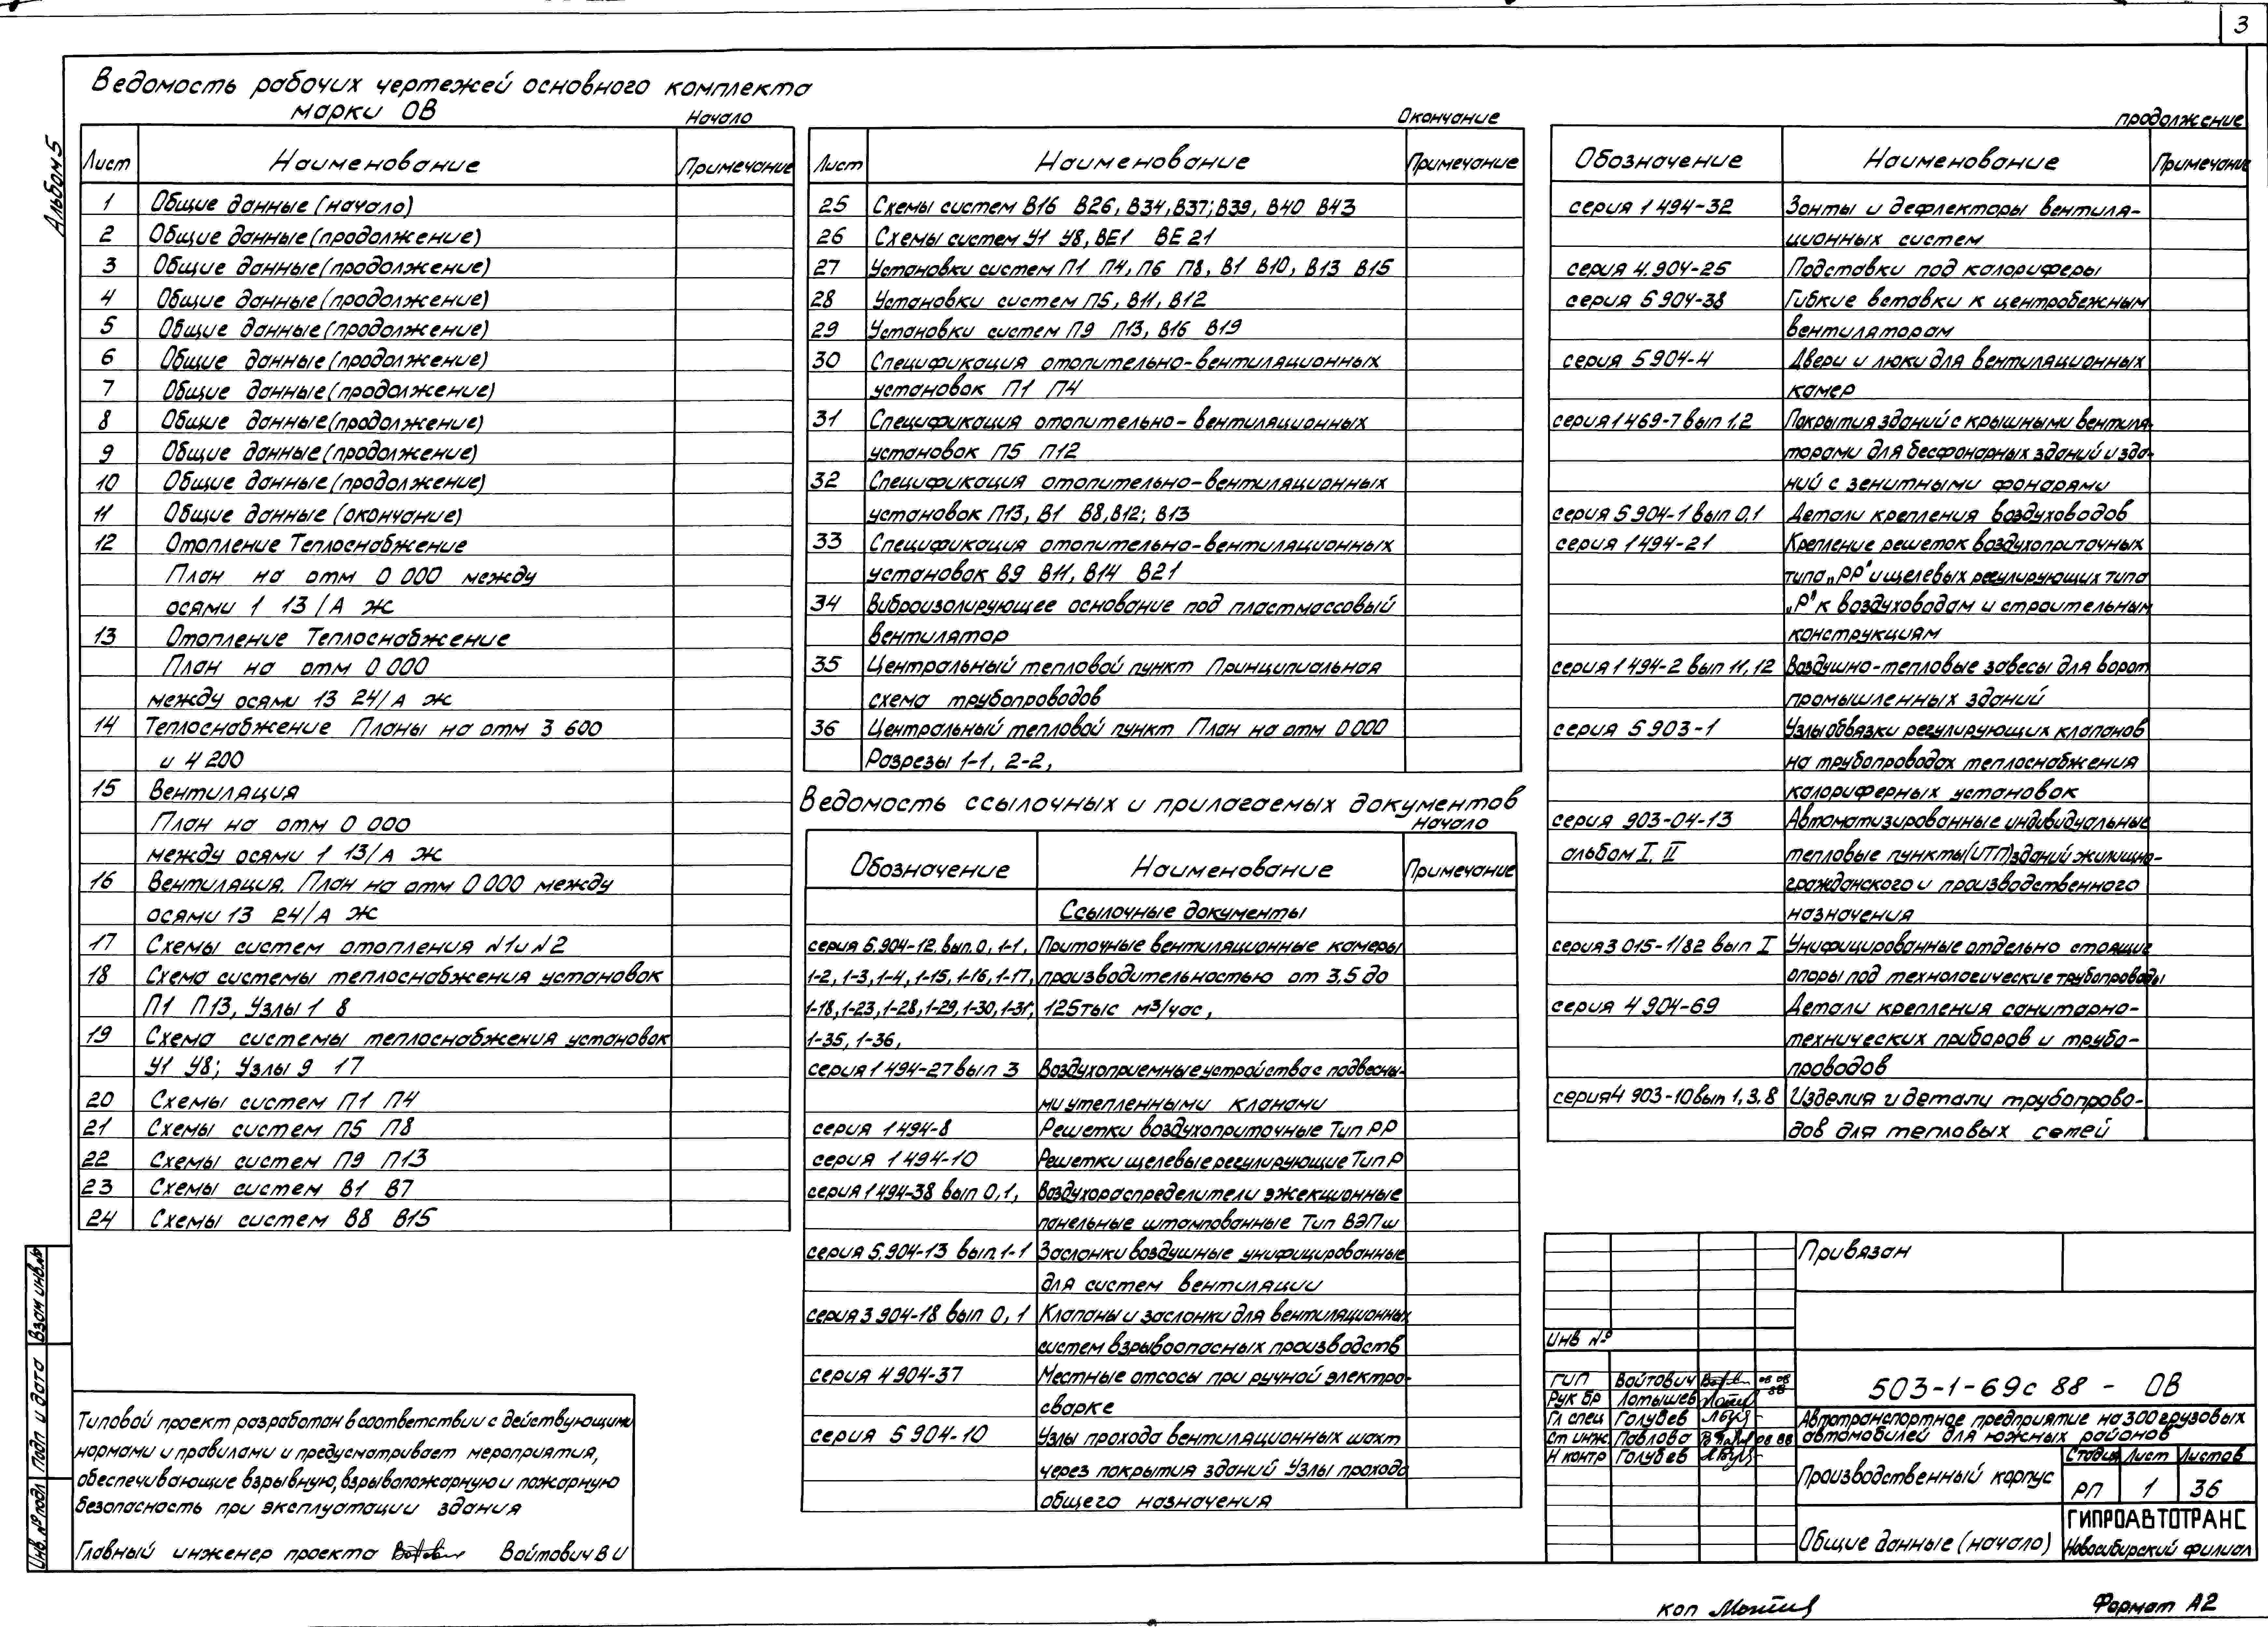 3
Альбом 5
Ведомость рабочих чертежей основного комплекта
марки ОВ
Начало
Лист Наименование Примечание
1 Общие данные (начало)
2 Общие данные (продолжение)
3 Общие данные (продолжение)
4 Общие данные (продолжение)
5 Общие данные (продолжение)
6 Общие данные (продолжение)
7 Общие данные (продолжение)
8 Общие данные (продолжение)
9 Общие данные (продолжение)
10 Общие данные (продолжение)
11 Общие данные (окончание)
12 Отопление Теплоснабжение
План на отм 0 000 между
осями 1 13 / А Ж
13 Отопление Теплоснабжение
План на отм 0 000
между осями 13 24/ А Ж
14 Теплоснабжение Планы на отм 3 600
и 4 200
15 Вентиляция
План на отм 0 000
между осями 1 13/А Ж
16 Вентиляция. План на отм 0 000 между
осями 13 24/А Ж
17 Схемы систем отопления N1 и N2
18 Схема системы теплоснабжения установок
П1 П13, Узлы 1 8
19 Схема системы теплоснабжения установок
У1 У8; Узлы 9 17
20 Схемы систем П1 П4
21 Схемы систем П5 П8
22 Схемы систем П9 П13
23 Схемы систем В1 В7
24 Схемы систем В8 В15
Окончание
Лист Наименование Примечание
25 Схемы систем В16 В26, В34, В37; В39, В40 В43
26 Схемы систем У1 У8, ВЕ1 ВЕ 21
27 Установки систем П1 П4, П6 П8, В1 В10, В13 В15
28 Установки систем П5, В11, В12
29 Установки систем П9 П13, В16 В19
30 Спецификация отопительно-вентиляционных
установок П1 П4
31 Спецификация отопительно-вентиляционных
установок П5 П12
32 Спецификация отопительно-вентиляционных
установок П13, В1 В8, В12; В13
33 Спецификация отопительно-вентиляционных
установок В9 В11, В14 В21
34 Виброизолирующее основание под пластмассовый
вентилятор
35 Центральный тепловой пункт Принципиальная
схема трубопроводов
36 Центральный тепловой пункт План на отм 0 000
Разрезы 1-1, 2-2,
Ведомость ссылочных и прилагаемых документов
Начало
Обозначение Наименование Примечание
Ссылочные документы
серия 5.904-12. вып. 0, 1-1, Приточные вентиляционные камеры
1-2, 1-3, 1-4, 1-15, 1-16, 1-17, производительностью от 3,5 до
1-18, 1-23, 1-28, 1-29, 1-30, 1-31, 125тыс м³/час,
1-35, 1-36,
серия 1 494-27 вып 3 Воздухоприемные устройства с подвесны-
ми утепленными клапами
серия 1 494-8 Решетки воздухоприточные Тип РР
серия 1 494-10 Решетки щелевые регулирующие Тип Р
серия 1 494-38 вып 0, 1, Воздухораспределители эжекционные
панельные штампованные Тип ВЭПш
серия 5.904-13 вып. 1-1 Заслонки воздушные унифицированные
для систем вентиляции
серия 3 904-18 вып 0, 1 Клапаны и заслонки для вентиляционных
систем взрывоопасных производств
серия 4 904-37 Местные отсосы при ручной электро-
сварке
серия 5 904-10 Узлы прохода вентиляционных шахт
через покрытия зданий Узлы прохода
общего назначения
продолжение
Обозначение Наименование Примечание
серия 1 494-32 Зонты и дефлекторы вентиля-
ционных систем
серия 4.904-25 Подставки под калориферы
серия 5 904-38 Гибкие вставки к центробежным
вентиляторам
серия 5 904-4 Двери и люки для вентиляционных
камер
серия 1 469-7 вып 1,2 Покрытия зданий с крышными вентиля-
торами для бесфонарных зданий и зда-
ний с зенитными фонарями
серия 5 904-1 вып 0,1 Детали крепления воздуховодов
серия 1 494-21 Крепление решеток воздухоприточных
типа „РР" и щелевых регулирующих типа
„Р" к воздуховодам и строительным
конструкциям
серия 1 494-2 вып 11, 12 Воздушно-тепловые завесы для ворот
промышленных зданий
серия 5 903-1 Узлы обвязки регулирующих клапанов
на трубопроводах теплоснабжения
калориферных установок
серия 903-04-13 Автоматизированные индивидуальные
альбом I, II тепловые пункты (ИТП) зданий жилищно-
гражданского и производственного
назначения
серия 3 015-1/82 вып I Унифицированные отдельно стоящие
опоры под технологические трубопроводы
серия 4 904-69 Детали крепления санитарно-
технических приборов и трубо-
проводов
серия 4 903-10 вып 1, 3, 8 Изделия и детали трубопрово-
дов для тепловых сетей
Типовой проект разработан в соответствии с действующими
нормами и правилами и предусматривает мероприятия,
обеспечивающие взрывную, взрывопожарную и пожарную
безопасность при эксплуатации здания
Главный инженер проекта Войтович В И
Взам инв.№
Подп и дата
Инв. № подл
Привязан
Инв №
ГИП Войтович 08 08 88
Рук бр Латышев
Гл спец Голубев
Ст инж. Павлова 08 88
Н контр Голубев
503-1-69с 88 - ОВ
Автотранспортное предприятие на 300 грузовых
автомобилей для южных районов
Производственный корпус
Стадия Лист Листов
РП 1 36
Общие данные (начало)
ГИПРОАВТОТРАНС
Новосибирский филиал
коп
Формат А2